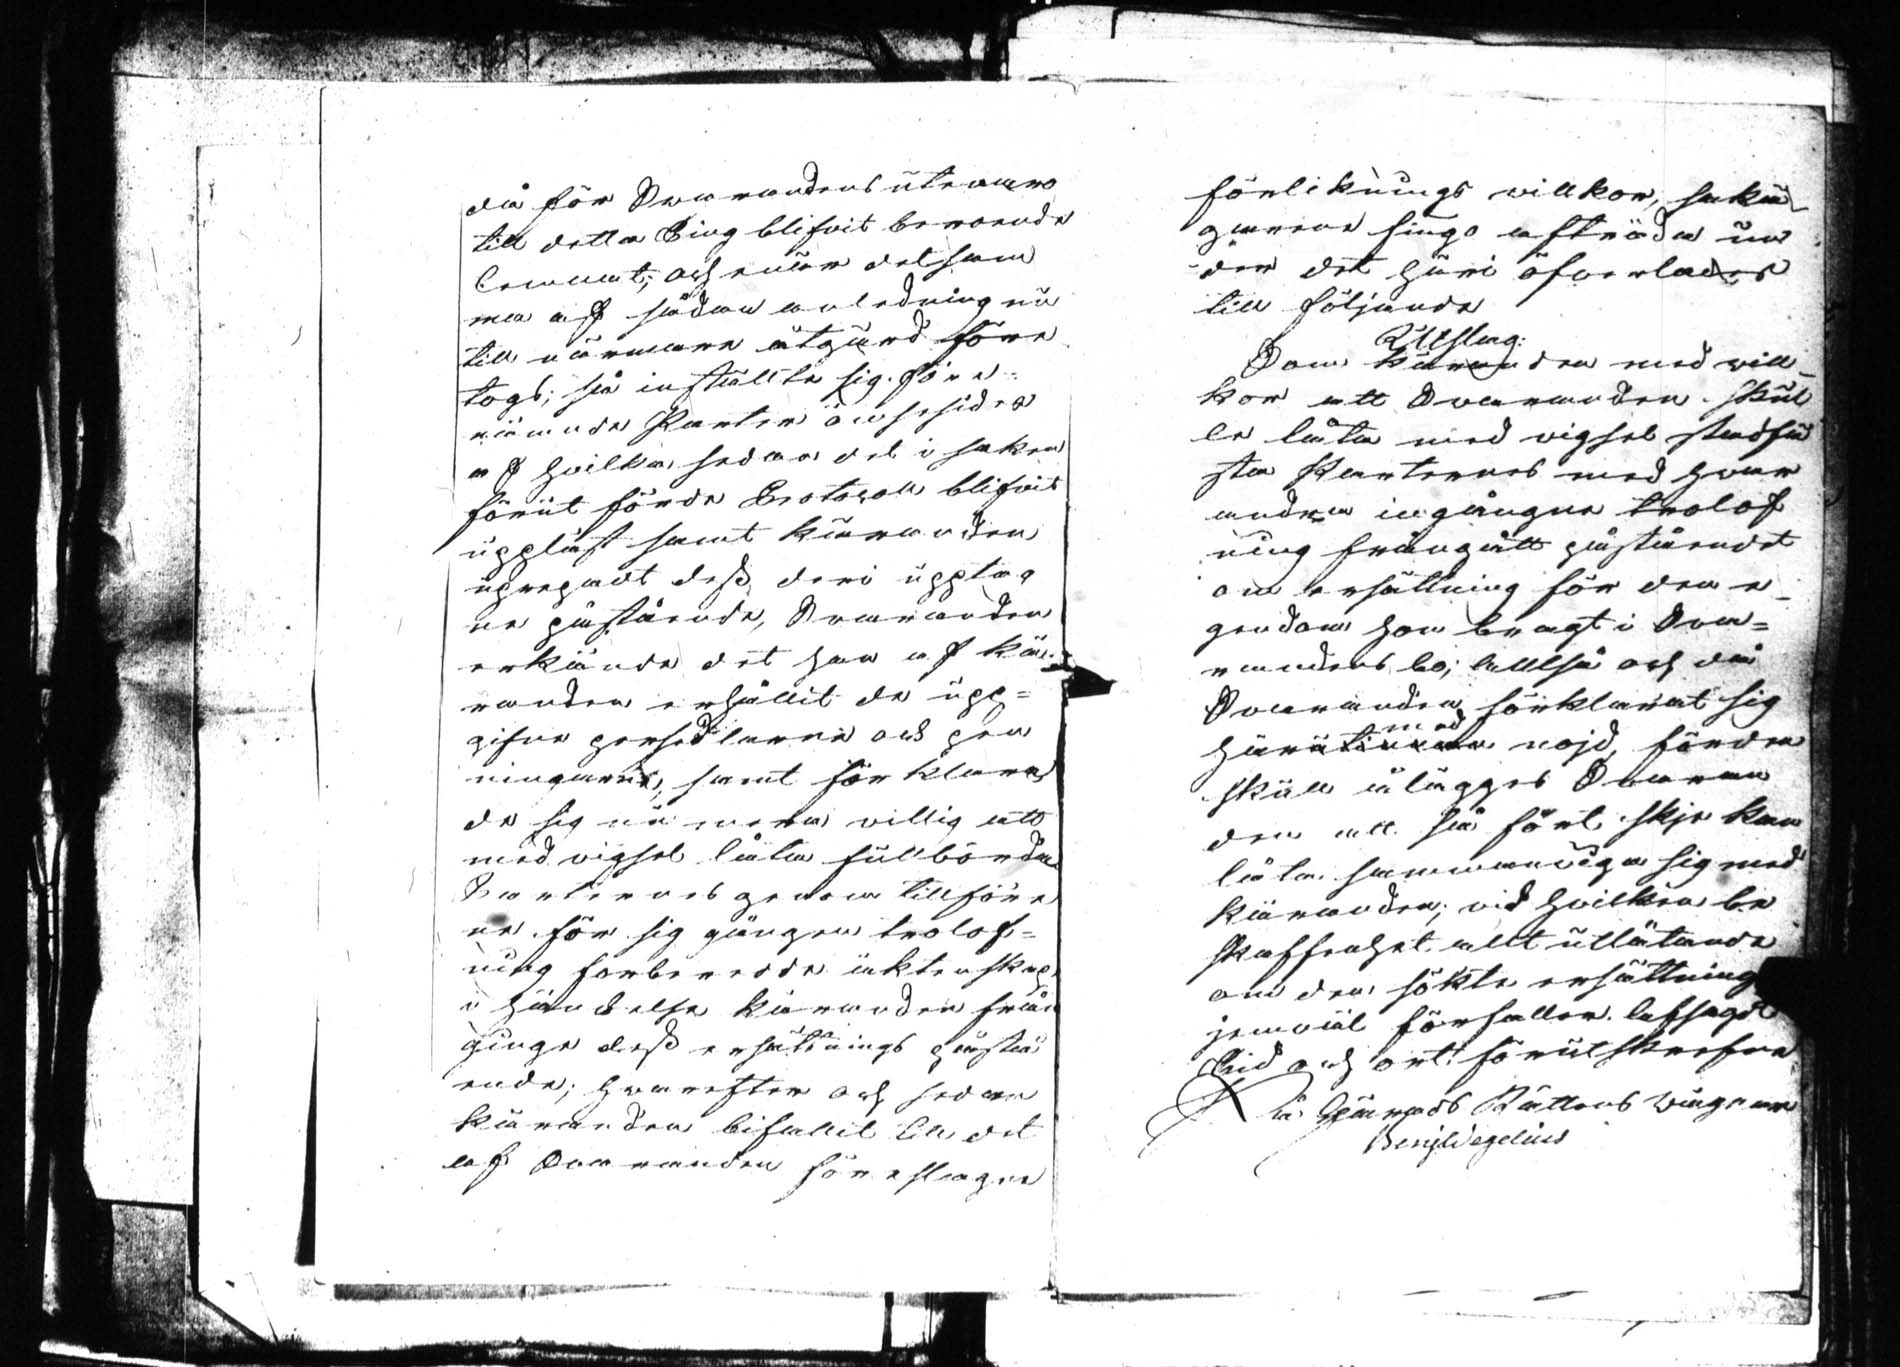 då för Swarandens utewaro
till detta Ting blifvit beroende
lemnat; och enär det sam
ma af sådan anledning nu
till närmare åtgärd före
togs, så inställte sig före-
nämnde Parter å ömse sidor
af hvilka, sedan det i saken
förut förde Protocoll blifvit
uppläst samt Käranden
upprepadt dess deri upptag
ne påstående, Swaranden
erkände det han af Kä-
randen erhållit de upp=
gifne persedlarne och pen
ningarne, samt förklara
de sig nu mera willig att
med vigsel låta fullborda
Parternes genom tillföre
ne för sig gången trolof=
ning forberedde äktenskap,
i händelse Käranden från
ginge dess ersättnings påstå
ende; hwarefter och sedan
Käranden bifallit till det
af Swaranden föreslagne
förliknings willkor, sakä
garene fingo afträda un
der det häri öfverlades
till följande
Utslag:
Som Käranden med will-
kor att Swaranden skul
le låta med vigsel stadfä
sta Parternes med hvar
andra ingångne trolof
ning frångått påståendet
om ersättning för den e-
gendom hon bragt i Swa=
randens bo; alltså och då
Swaranden förklarat sig
härmed nöjd, förden
skull ålägges Swaran
den att så fort skje kan
låta sammanviga sig med
Käranden; vid hvilken be
skaffenhet allt utlåtande
om den sökte ersättning
jemväl förfaller. Afsagdt
Tid och ort förutskrefne
På Härads Rättens vägnar
Benj: Wegelius